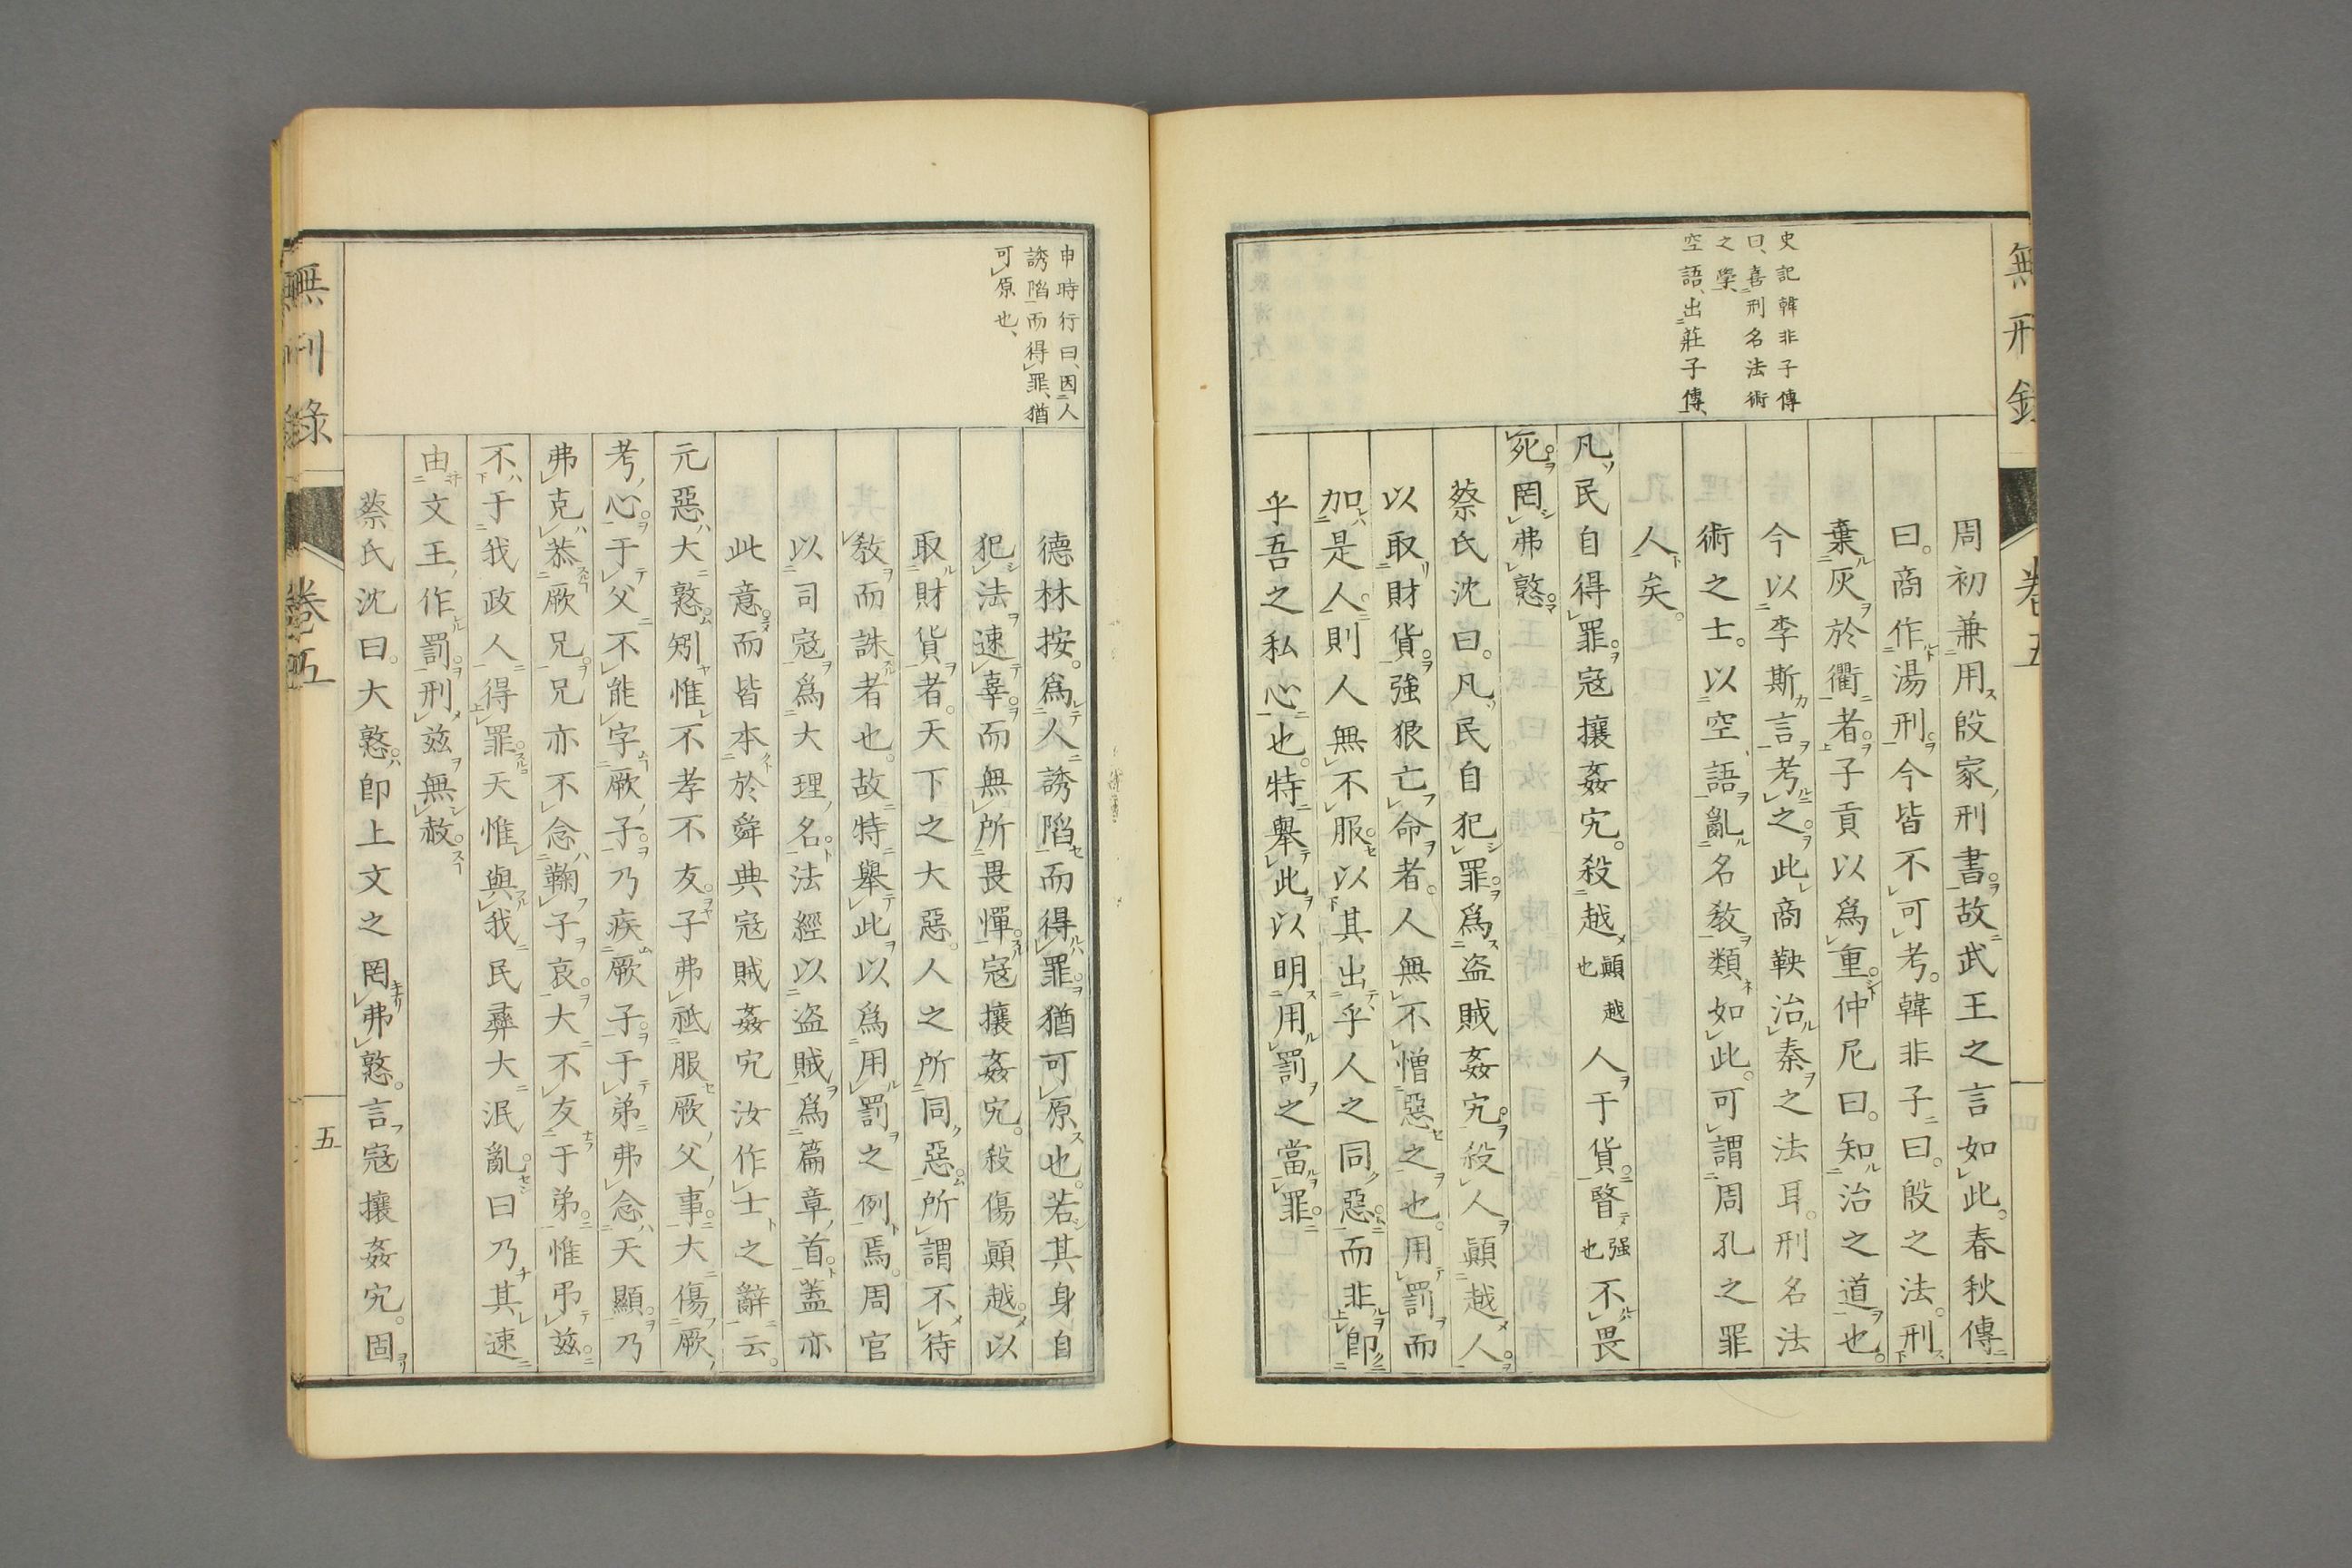 無刑錄
卷五
史記韓非子傳
曰、喜刑名法術
之學、
空語、出莊子傳、
周初兼用殷家刑書。故武王之言如此。春秋傳
曰。商作湯刑。今皆不可考。韓非子曰。殷之法。刑
棄灰於衢者。子貢以爲重。仲尼曰。知治之道也。
今以李斯言考之。此商鞅治秦之法耳。刑名法
術之士。以空語亂名教。類如此。可謂周孔之罪
人矣。
凡民自得罪。寇攘姦宄。殺越顚越也人于貨。暋强也不畏
死。罔弗憝。
蔡氏沈曰。凡民自犯罪。爲盗賊姦宄。殺人顚越人。
以取財貨。強狠亡命者。人無不憎惡之也。用罰而
加是人。則人無不服。以其出乎人之同惡。而非卽
乎吾之私心也。特舉此以明用罰之當罪。
申時行曰、因人
誘陷而得罪、猶
可原也、
德林按。爲人誘陷而得罪。猶可原也。若其身自
犯法。速辜。而無所畏憚。寇攘姦宄。殺傷顚越。以
取財貨者。天下之大惡。人之所同惡。所謂不待
教而誅者也。故特舉此以爲用罰之例焉。周官
以司寇爲大理名。法經以盗賊爲篇章首。蓋亦
此意。而皆本於舜典寇賊姦宄汝作士之辭云。
元惡大憝。矧惟不孝不友。子弗祗服厥父事。大傷厥
考心。于父不能字厥子。乃疾厥子。于弟弗念天顯。乃
弗克恭厥兄。兄亦不念鞠子哀。大不友于弟。惟弔茲。
不于我政人得罪。天惟與我民彝大泯亂。曰乃其速
由文王作罰。刑茲無赦。
蔡氏沈曰。大憝。卽上文之罔弗憝。言寇攘姦宄。固
無刑錄
卷五
五